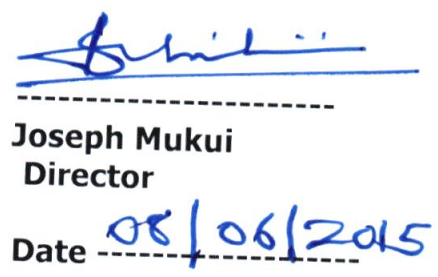 Joseph Mukui
Director
Date 08/06/2015